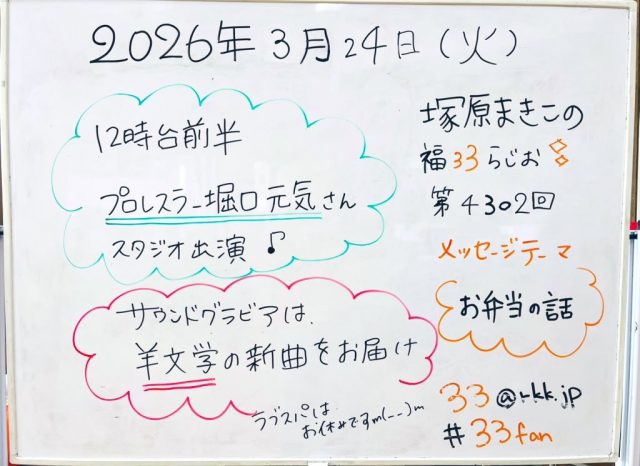 2026年3月24日(火)
12時台前半
プロレスラー堀口元気さん
スタジオ出演♪
サウンドグラビアは、
羊文学の新曲をお届け
ラブスパは
お休みですm(--)m
塚原まきこの
福33らじお
第4302回
メッセージテーマ
お弁当の話
33@rkk.jp
#33fan